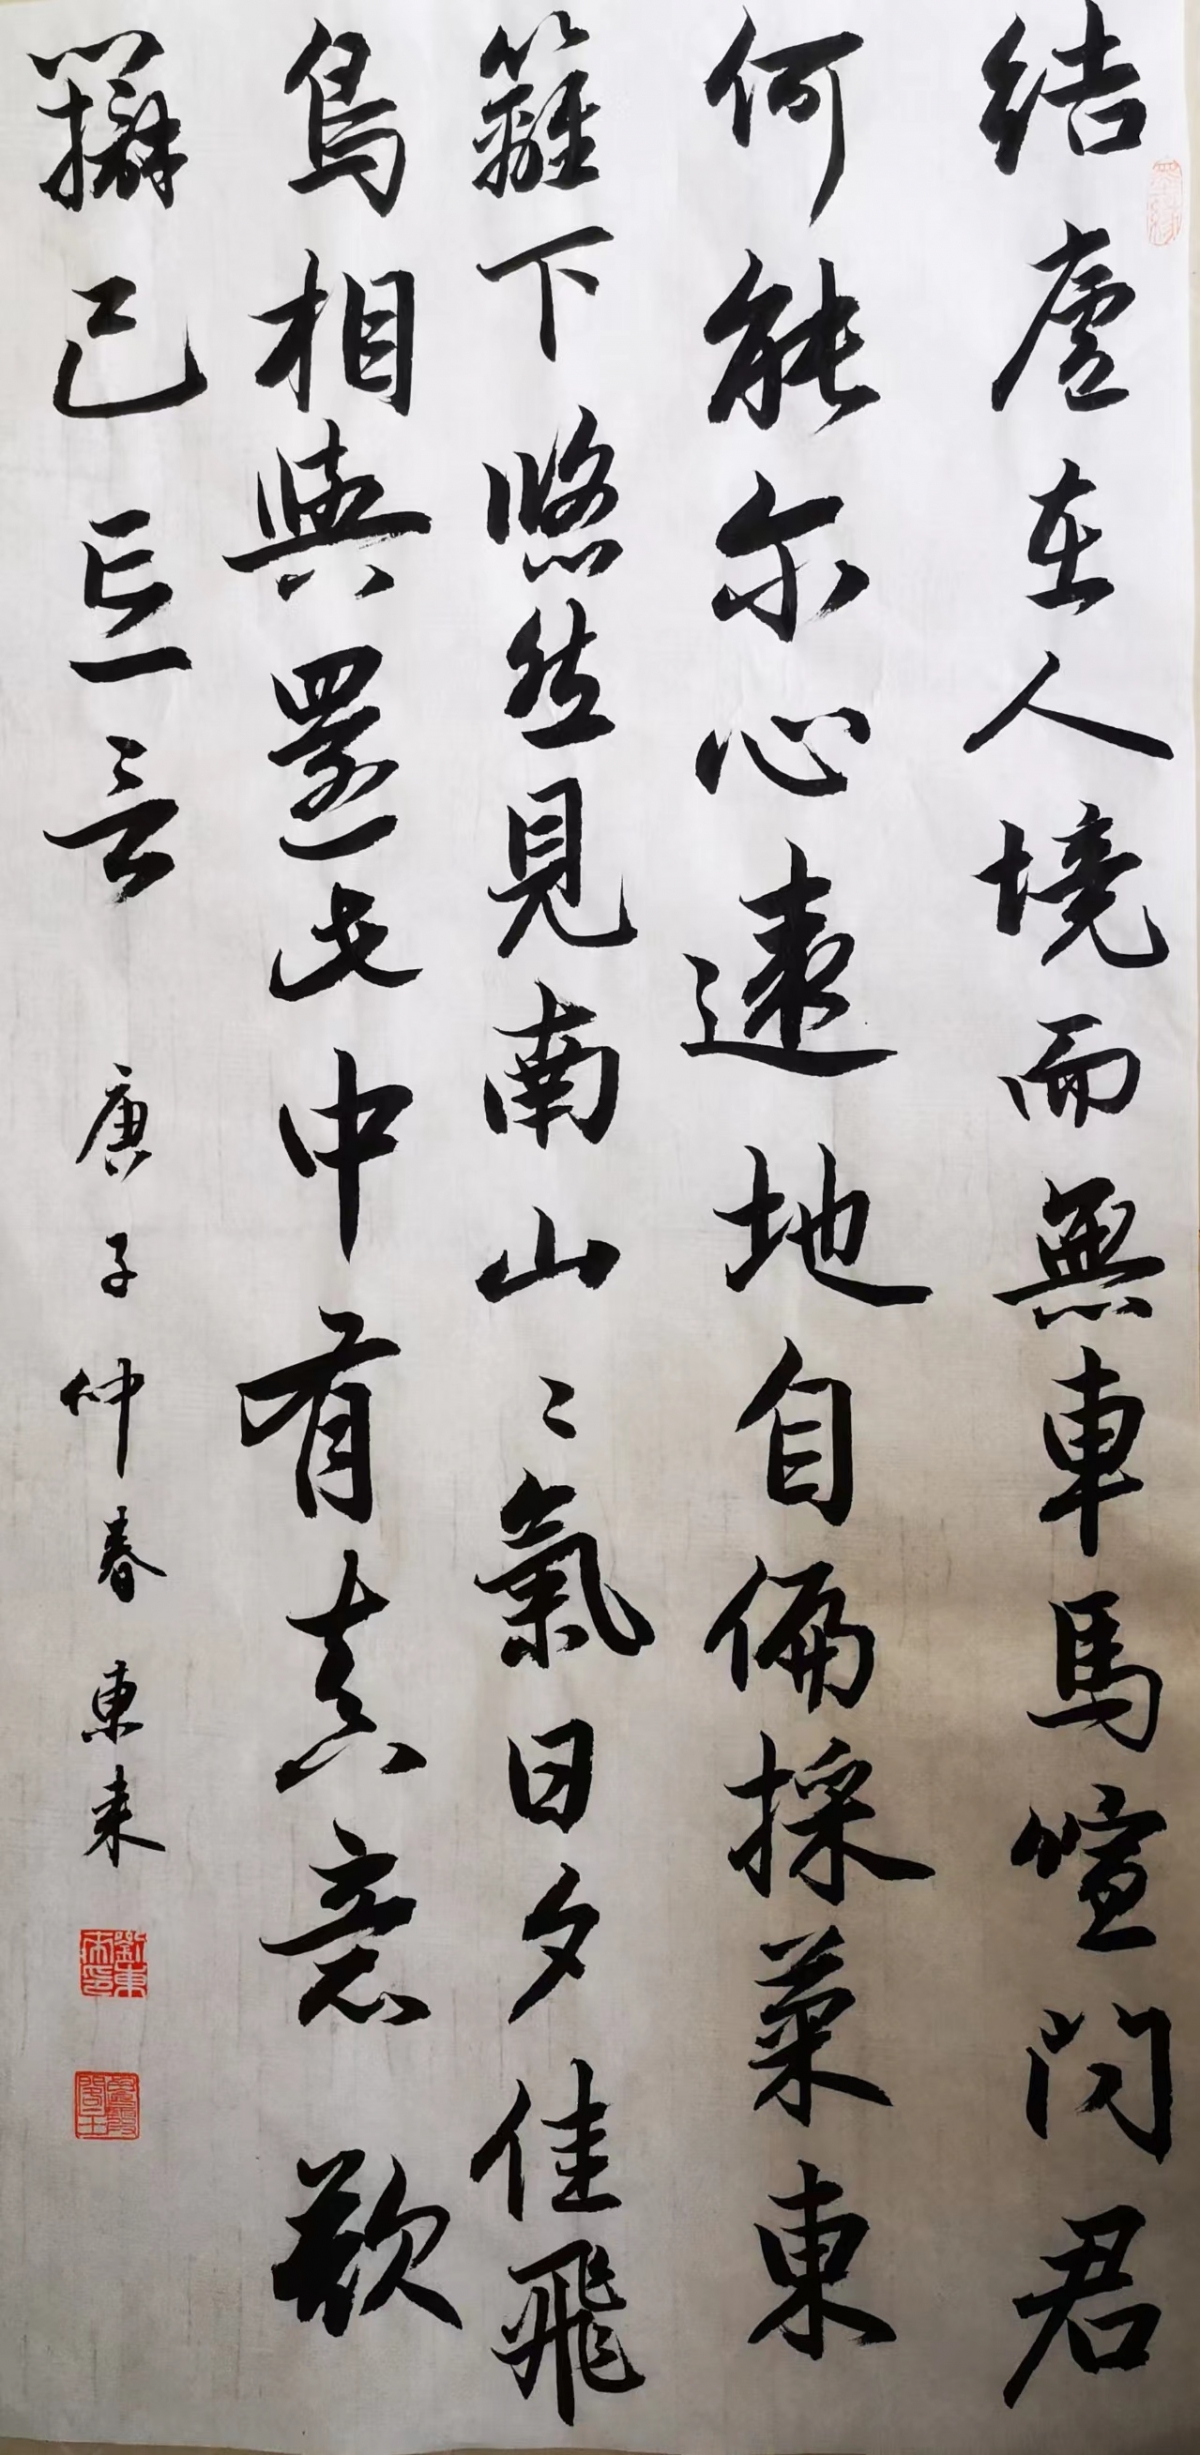 结廬在人境而無車馬喧问君
何能尔心遠地自偏採菊東
籬下悠然見南山山氣日夕佳飛
鳥相與還此中有真意欲
辯已忘言 庚子仲春 東来
劉東来印